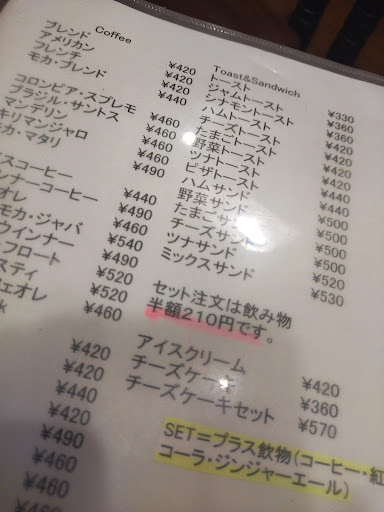 Coffee
ブレンド
アメリカン
フレンチ
モカ・ブレンド
コロンビア・スプレモ
ブラジル・サントス
マンデリン
キリマンジャロ
カ・マタリ
スコーヒー
ンナーコーヒー
オレ
モカ・ジャバ
ウインナー
・フロート
スティ
ェオレ
k
¥420
¥420
¥420
¥440
¥460
¥460
¥460
¥490
¥440
¥490
¥460
¥540
¥490
¥520
¥520
¥460
¥420
¥420
¥440
¥420
¥490
¥460
¥460
¥460
Toast&Sandwich
トースト
ジャムトースト
シナモントースト
ハムトースト
チーズトースト
たまごトースト
野菜トースト
ツナトースト
ピザトースト
ハムサンド
野菜サンド
たまごサンド
チーズサンド
ツナサンド
ミックスサンド
¥330
¥360
¥360
¥420
¥420
¥420
¥440
¥440
¥500
¥500
¥500
¥520
¥530
セット注文は飲み物
半額210円です。
アイスクリーム ¥420
チーズケーキ ¥360
チーズケーキセット ¥570
SET=プラス飲物(コーヒー・紅
コーラ・ジンジャーエール)